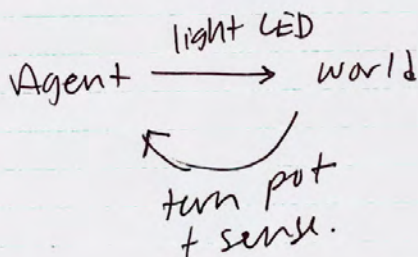 light LED
Agent → world
turn pot
+ sense.